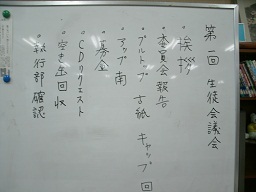 第一回 生徒会議会
・挨拶
・委員会報告
・プルトップ 古紙 キャップ 回
・アップ南
・募金
・CDリクエスト
・空き缶回収
・執行部確認